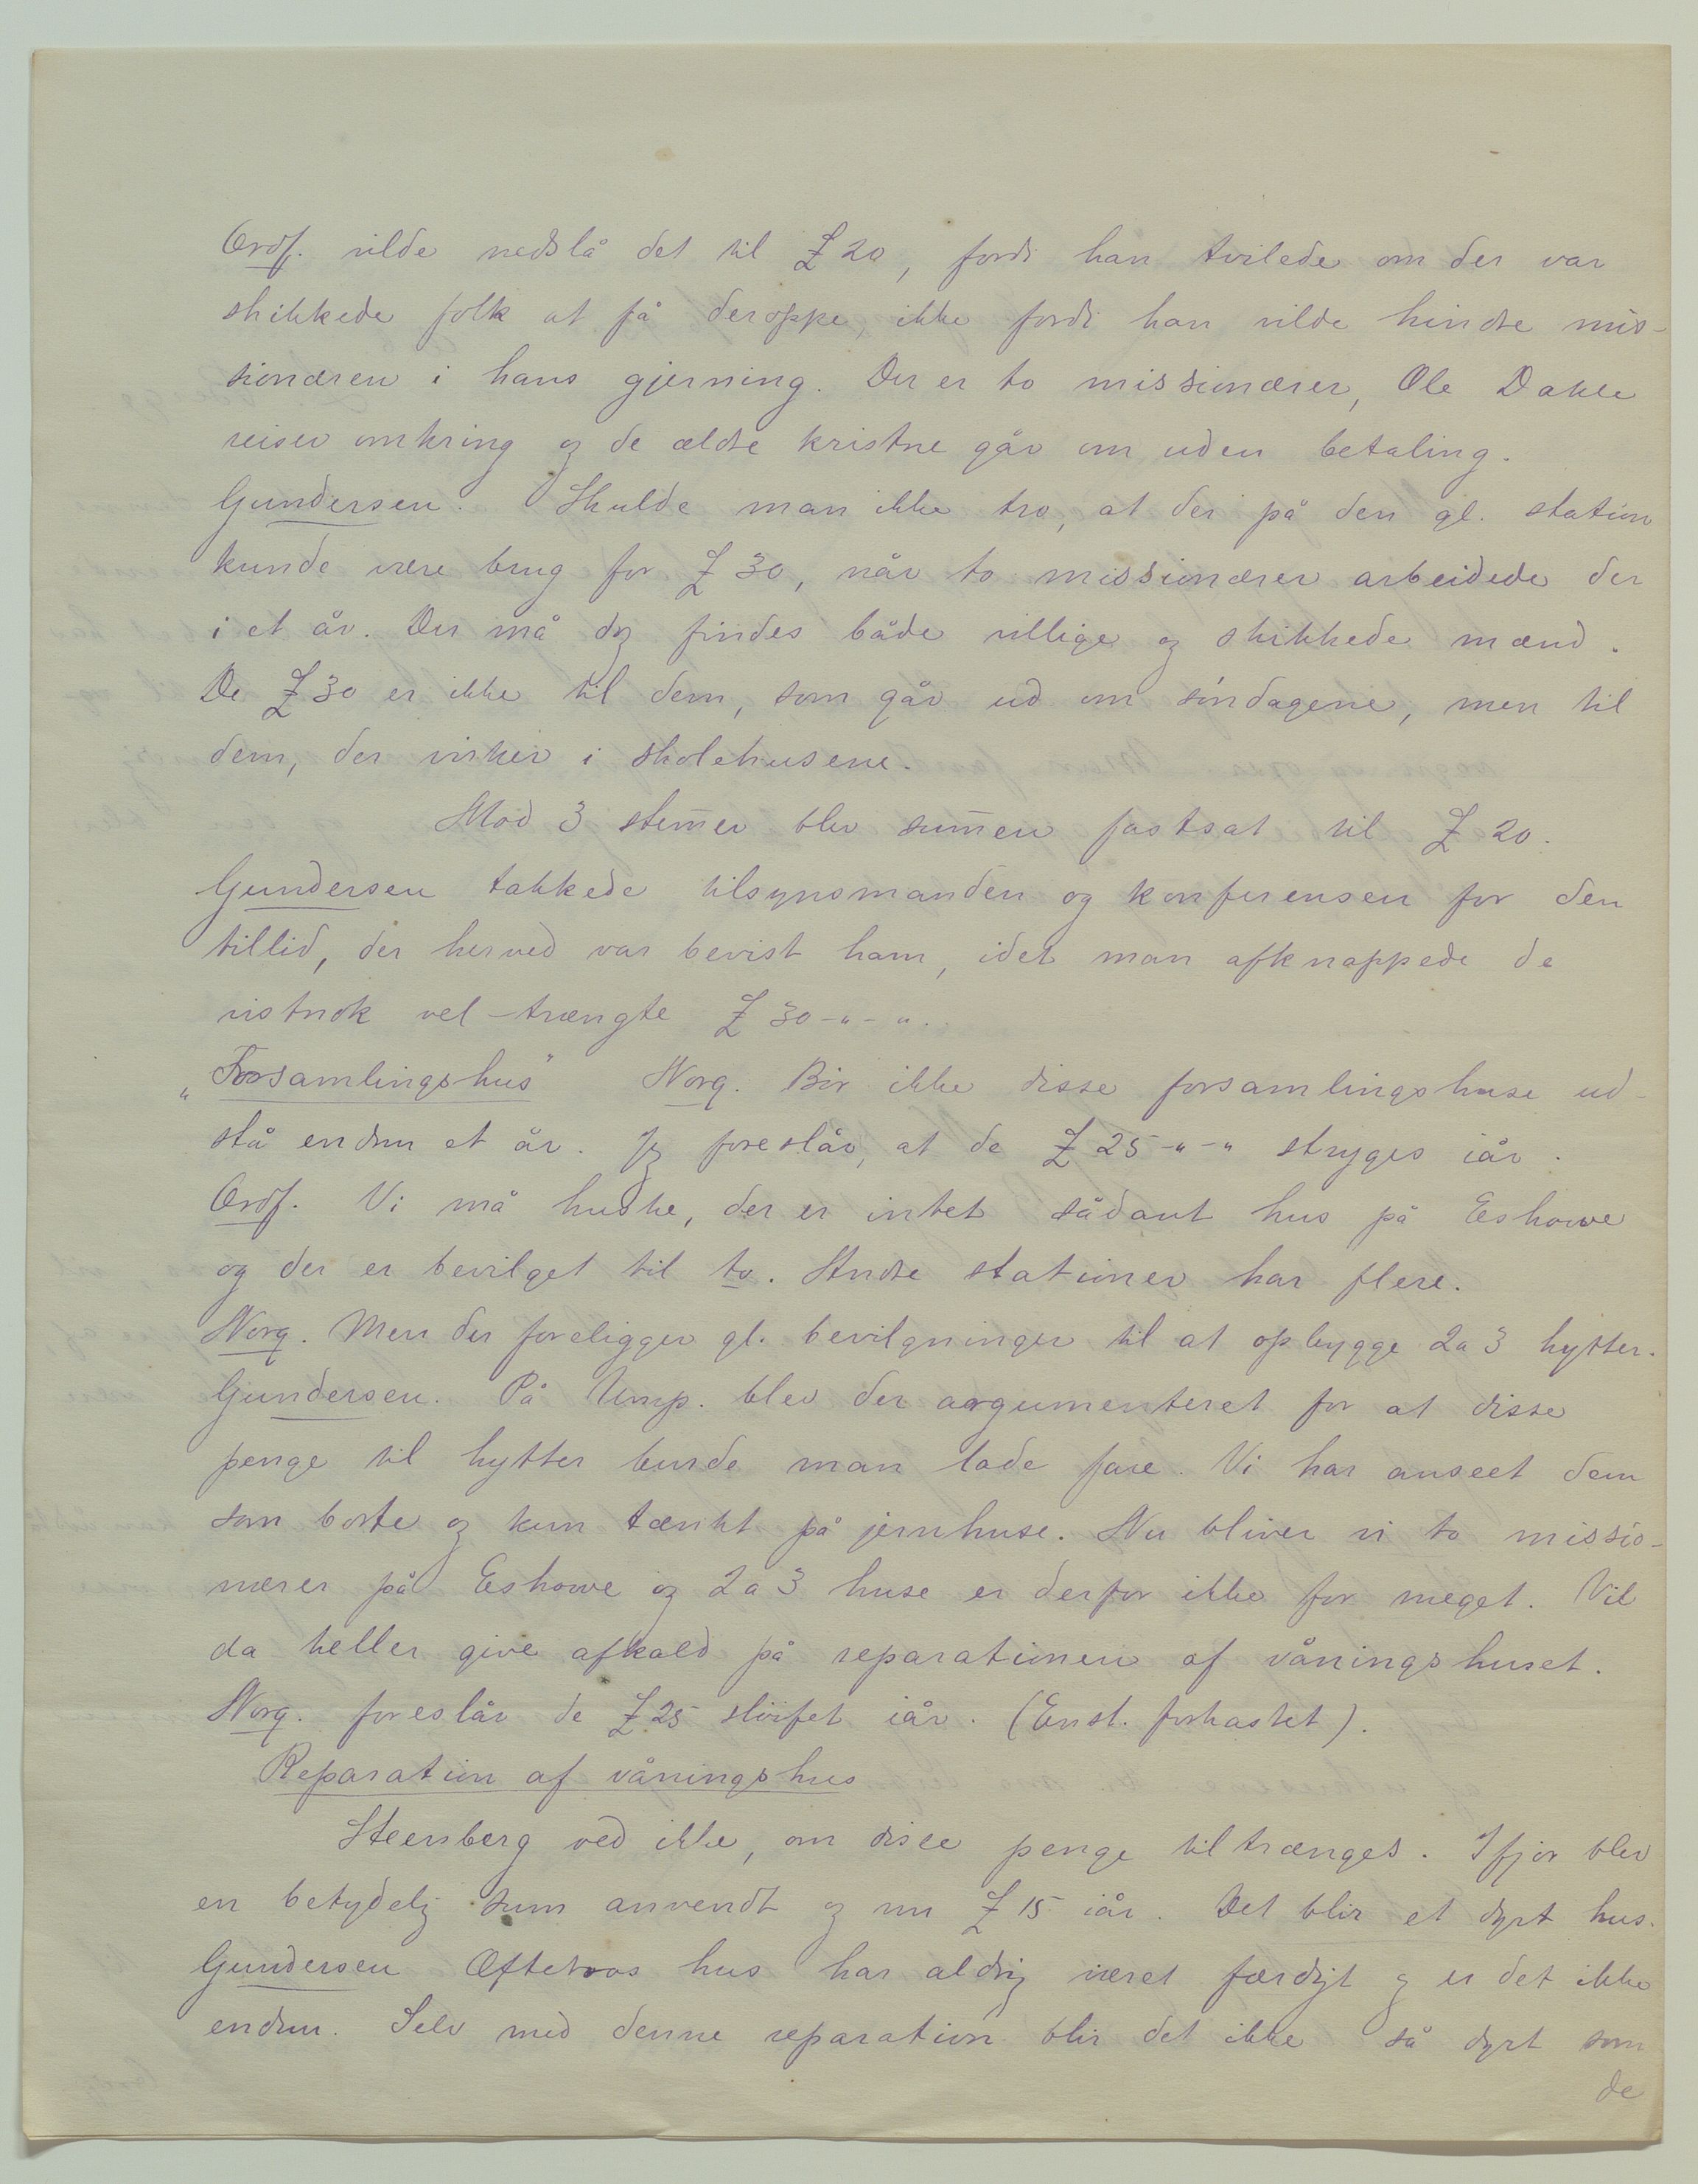 Ordf. vilde nedslå det til £ 20, fordi han tvilede om der var
skikkede folk at få deroppe, ikke fordi han vilde hindre mis-
sionæren i hans gjerning. Der er to missionærer, Ole Dahle
reiser omkring og de ældre kristne går om uden betaling.
Gundersen. Skulde man ikke tro, at der på den gl. station
kunde være brug for £ 30, når to missionærer arbeidede der
i et år. Der må dog findes både villige og skikkede mænd.
De £ 30 er ikke til dem, som går ud om söndagene, men til
dem, der virker i skolehusene.
Mod 3 stem̅er blev sum̅en fastsat til £ 20.
Gundersen takkede tilsynsmanden og konferensen for den
tillid, der herved var bevist ham, idet man afknappede de
vistnok vel-trængte £ 30-"-".
"Forsamlingshus" Norg. Bör ikke disse forsamlingshuse ud-
stå endnu et år. Jeg foreslår, at de £ 25-"-" stryges iår.
Ordf. Vi må huske, der er intet sådant hus på Eshowe
og der er bevilget til to. Andre stationer har flere.
Norg. Men der foreligger gl. bevilgninger til at opbygge 2 a 3 hytter.
Gundersen. På Ump. blev der argumenteret for at disse
penge til hytter burde man lade fare. Vi har anseet dem
som borte og kun tænkt på jernhuse. Nu bliver vi to missio-
nærer på Eshowe og 2 a 3 huse er derfor ikke for meget. Vil
da heller give afkald på reparationen af våningshuset.
Norg. foreslår de £ 25 slöifet iår. (Enst. forkastet).
Reparation af våningshus
Steenberg ved ikke, om disse penge tiltrænges. Ifjor blev
en betydelig sum anvendt og nu £ 15 iår. Det blir et dyrt hus.
Gundersen Æftebros hus har aldrig været færdigt og er det ikke
endnu. Selv med denne reparation blir det ikke så dyrt som
de